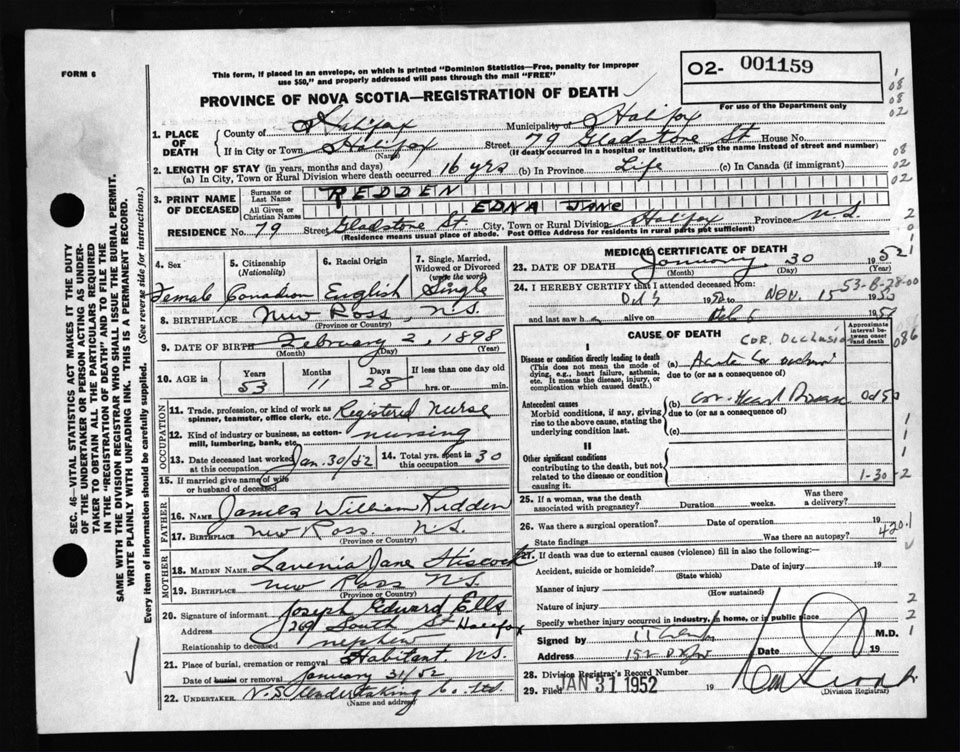 FORM 6
This form, if placed in an envelope, on which is printed "Dominion Statistics—Free, penalty for improper
use $50," and properly addressed will pass through the mail "FREE"
O2- 001159
For use of the Department only
PROVINCE OF NOVA SCOTIA—REGISTRATION OF DEATH
1. PLACE OF DEATH
County of Halifax Municipality of Halifax
If in City or Town Halifax Street 79 Gladstone St House No.
(Name) (If death occurred in a hospital or institution, give the name instead of street and number)
2. LENGTH OF STAY (in years, months and days)
(a) In City, Town or Rural Division where death occurred 16 yrs (b) In Province Life (c) In Canada (if immigrant)
3. PRINT NAME OF DECEASED
Surname or Last Name REDDEN
All Given or Christian Names EDNA JANE
RESIDENCE No. 79 Street Gladstone St. City, Town or Rural Division Halifax Province N.S.
(Residence means usual place of abode. Post Office Address for residents in rural parts not sufficient)
4. Sex
Female
5. Citizenship (Nationality)
Canadian
6. Racial Origin
English
7. Single, Married, Widowed or Divorced (write the word)
Single
8. BIRTHPLACE New Ross, N.S.
(Province or Country)
9. DATE OF BIRTH February 2, 1898
(Month) (Day) (Year)
10. AGE in Years Months Days If less than one day old
53 11 28 hrs. or min.
OCCUPATION
11. Trade, profession, or kind of work as spinner, teamster, office clerk, etc. Registered Nurse
12. Kind of industry or business, as cotton-mill, lumbering, bank, etc. nursing
13. Date deceased last worked at this occupation Jan. 30/52
14. Total yrs. spent in this occupation 30
15. If married give name of wife or husband of deceased
FATHER
16. NAME James William Redden
17. BIRTHPLACE New Ross. N.S.
(Province or Country)
MOTHER
18. MAIDEN NAME Lavenia Jane Hiscock
19. BIRTHPLACE New Ross N.S.
(Province or Country)
20. Signature of informant Joseph Edward Ells
Address 269 South St Halifax
Relationship to deceased nephew
21. Place of burial, cremation or removal Habitant, N.S.
Date of burial or removal January 31/52
22. UNDERTAKER N.S. Undertaking Co. Ltd.
(Name and address)
MEDICAL CERTIFICATE OF DEATH
23. DATE OF DEATH January 30 1952
(Month) (Day) (Year)
24. I HEREBY CERTIFY that I attended deceased from:
53-B-28-00
Nov. 15
and last saw h alive on 19
CAUSE OF DEATH
Approximate interval between onset and death
Cor. Occlusion
086
I
Disease or condition directly leading to death
(This does not mean the mode of dying, e.g., heart failure, asthenia, etc. It means the disease, injury, or complication which caused death.)
(a) Acute Cor occlusion
due to (or as a consequence of)
Antecedent causes
Morbid conditions, if any, giving rise to the above cause, stating the underlying condition last.
(b) Cor. Heart Disease
due to (or as a consequence of)
(c)
II
Other significant conditions
contributing to the death, but not related to the disease or condition causing it.
1-30-2
25. If a woman, was the death associated with pregnancy? Duration weeks. Was there a delivery?
26. Was there a surgical operation? Date of operation 19
State findings Was there an autopsy?
420.1
27. If death was due to external causes (violence) fill in also the following:—
Accident, suicide or homicide? Date of injury 19
(State which)
Manner of injury
(How sustained)
Nature of injury
Specify whether injury occurred in industry, in home, or in public place
Signed by M.D.
Address Date 19
28. Division Registrar's Record Number
29. Filed JAN 31 1952 19
(Division Registrar)
SEC. 46—VITAL STATISTICS ACT MAKES IT THE DUTY
OF THE UNDERTAKER OR PERSON ACTING AS UNDER-
TAKER TO OBTAIN ALL THE PARTICULARS REQUIRED
IN THE "REGISTRATION OF DEATH" AND TO FILE THE
SAME WITH THE DIVISION REGISTRAR WHO SHALL ISSUE THE BURIAL PERMIT.
WRITE PLAINLY WITH UNFADING INK. THIS IS A PERMANENT RECORD.
Every item of information should be carefully supplied. (See reverse side for instructions.)